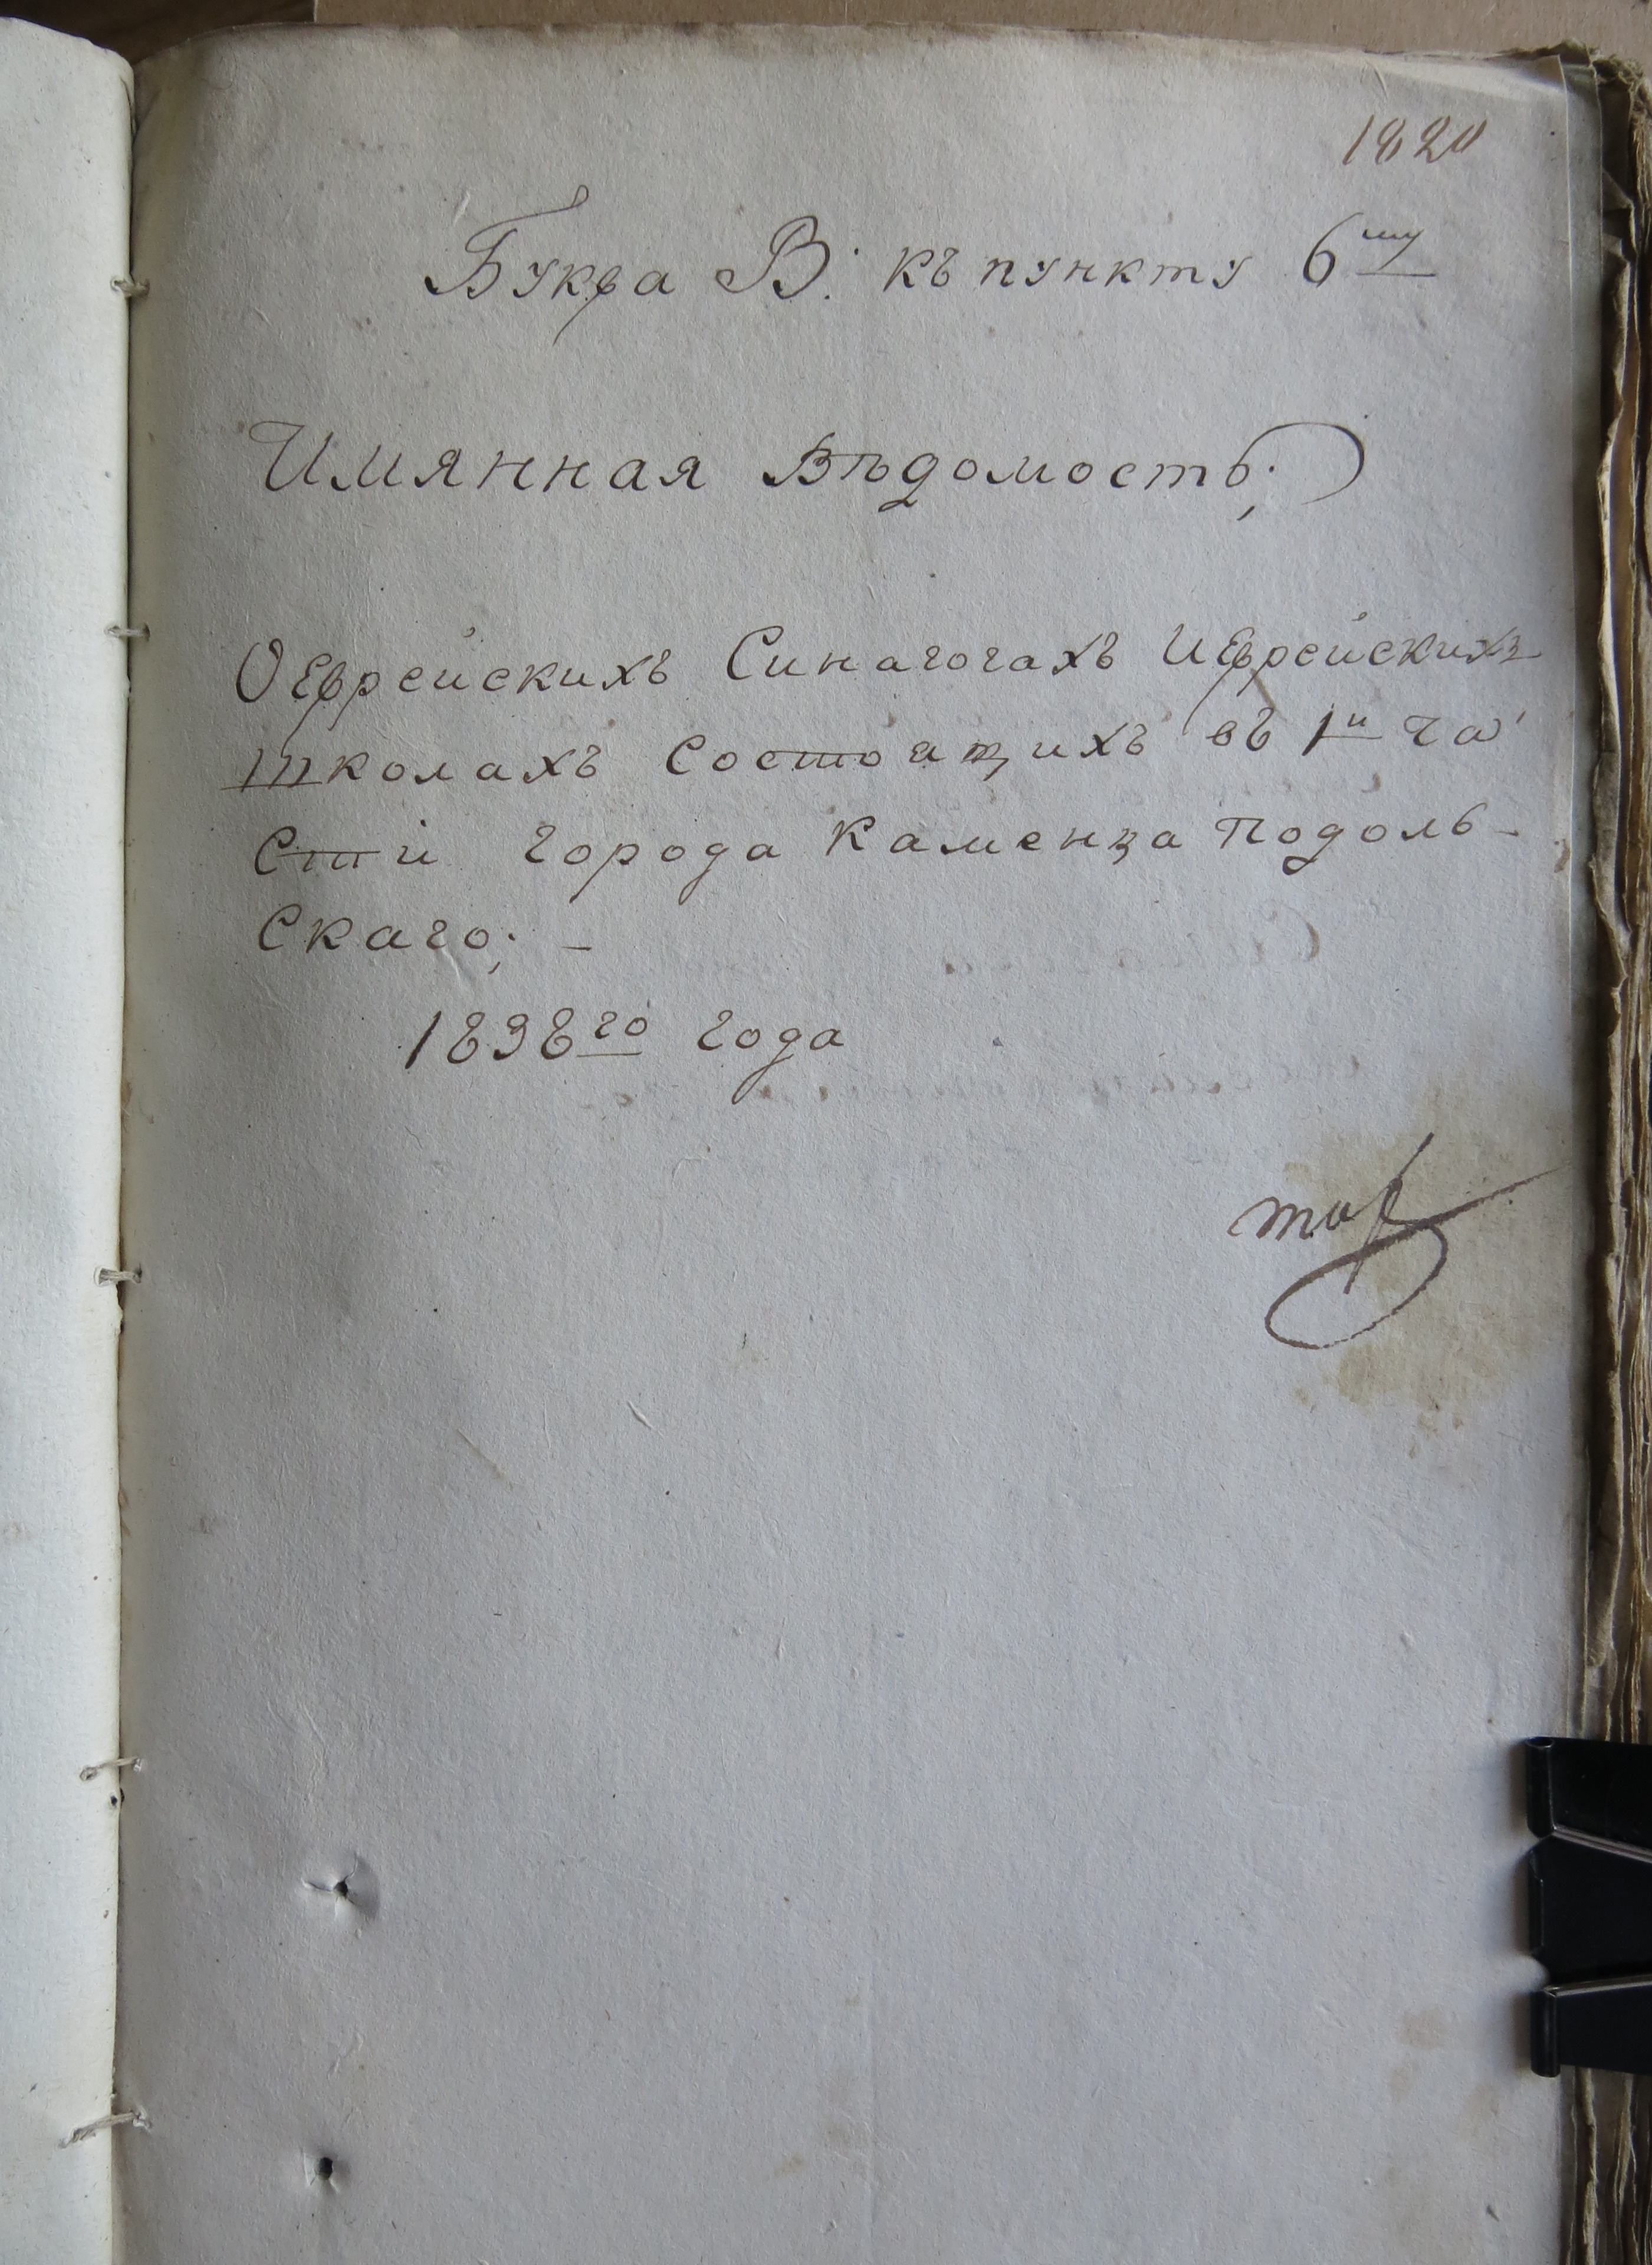 1820
Буква В. къ пункту 6му
Имянная Вѣдомость;
О Еврейскихъ Синагогахъ И Еврейскихъ
школахъ Состоащихъ въ 1й ча
Сти города Каменца Подоль-
Скаго; -
1838го года